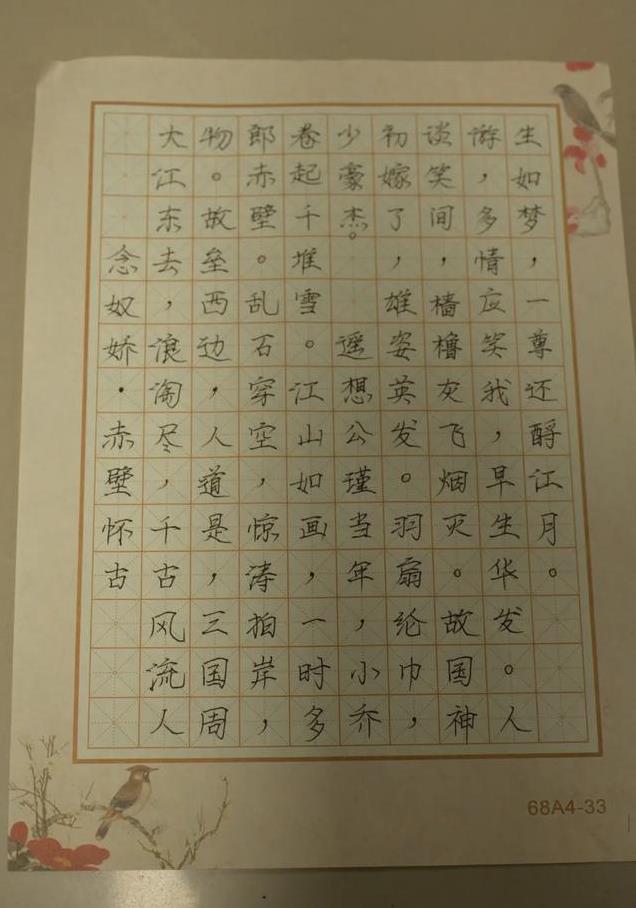 念奴娇·赤壁怀古
大江东去，浪淘尽，千古风流人
物。故垒西边，人道是，三国周
郎赤壁。乱石穿空，惊涛拍岸，
卷起千堆雪。江山如画，一时多
少豪杰。 遥想公瑾当年，小乔
初嫁了，雄姿英发。羽扇纶巾，
谈笑间，樯橹灰飞烟灭。故国神
游，多情应笑我，早生华发。人
生如梦，一尊还酹江月。
68A4-33